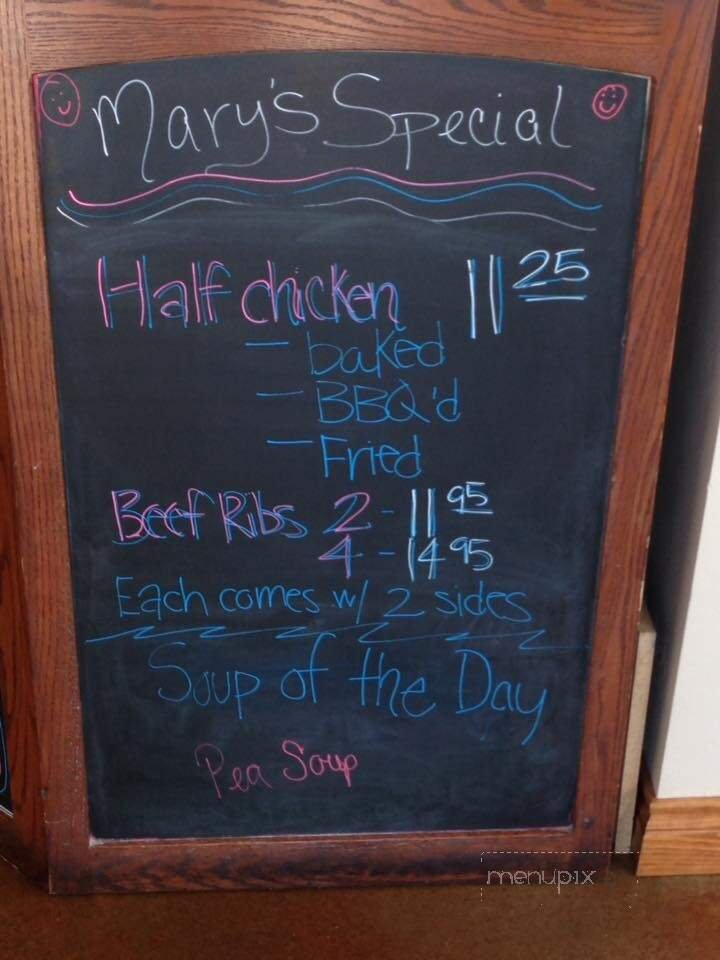 Mary's Special
Half chicken 11 25
- baked
- BBQ'd
- Fried
Beef Ribs 2 - 11 95
4 - 14 95
Each comes w/ 2 sides
Soup of the Day
Pea Soup
menupix